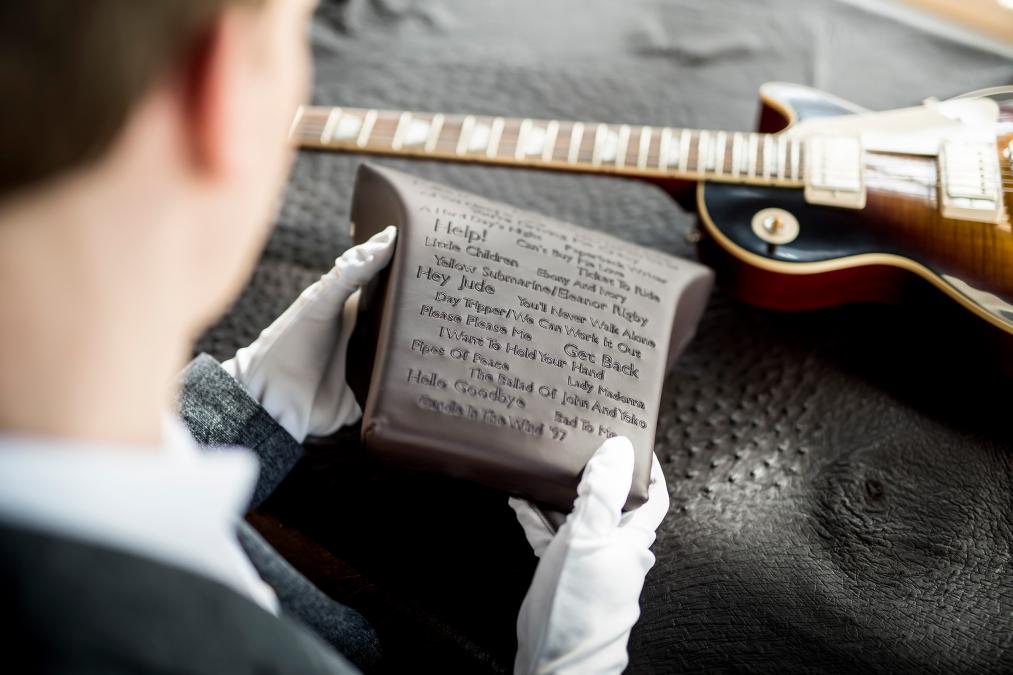 A Hard Day's Night Paperback Writer
Help! Can't Buy Me Love Ticket To Ride
Little Children Ebony And Ivory
Yellow Submarine/Eleanor Rigby
Hey Jude You'll Never Walk Alone
Day Tripper/We Can Work It Out
Please Please Me Get Back
I Want To Hold Your Hand
Pipes Of Peace Lady Madonna
The Ballad Of John And Yoko
Hello Goodbye Bad To Me
Candle In The Wind '97